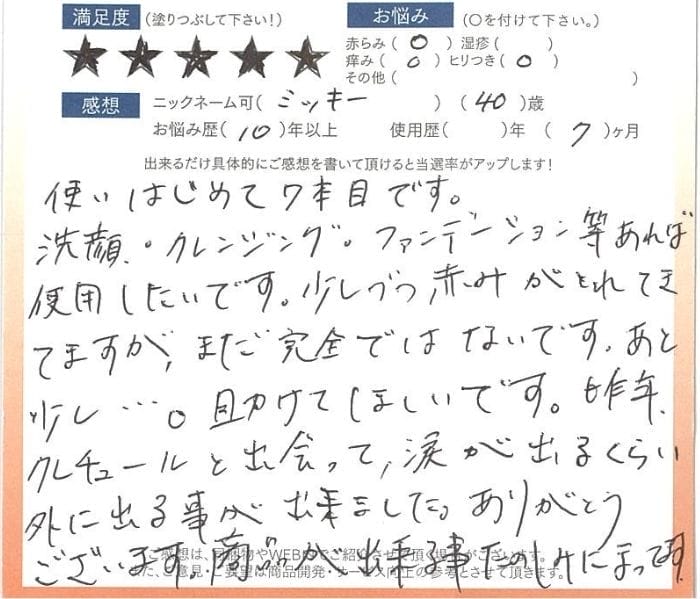 満足度 (塗りつぶして下さい!) お悩み (○を付けて下さい。)
★★★★★ 赤らみ( ○ ) 湿疹( )
痒み( ○ ) ヒリつき( ○ )
その他( )
感想 ニックネーム可( ミッキー ) ( 40 )歳
お悩み歴( 10 )年以上 使用歴( )年 ( 7 )ヶ月
出来るだけ具体的にご感想を書いて頂けると当選率がアップします!
使いはじめて7本目です。
洗顔、・クレンジング。ファンデーション等あれば
使用したいです。少しづつ赤みがとれてき
てますが、まだ完全ではないです。あと
少し…。助けてほしいです。昨年、
クレチュールと出会って、涙が出るくらい
外に出る事が出来ました。ありがとう
ございます。が出来る事たのしみにまってます。
ご感想は、やWEBでご紹介させて頂くがございます。
また、ご意見・ご要望は商品開発・サービス向上の参考とさせて頂きます。